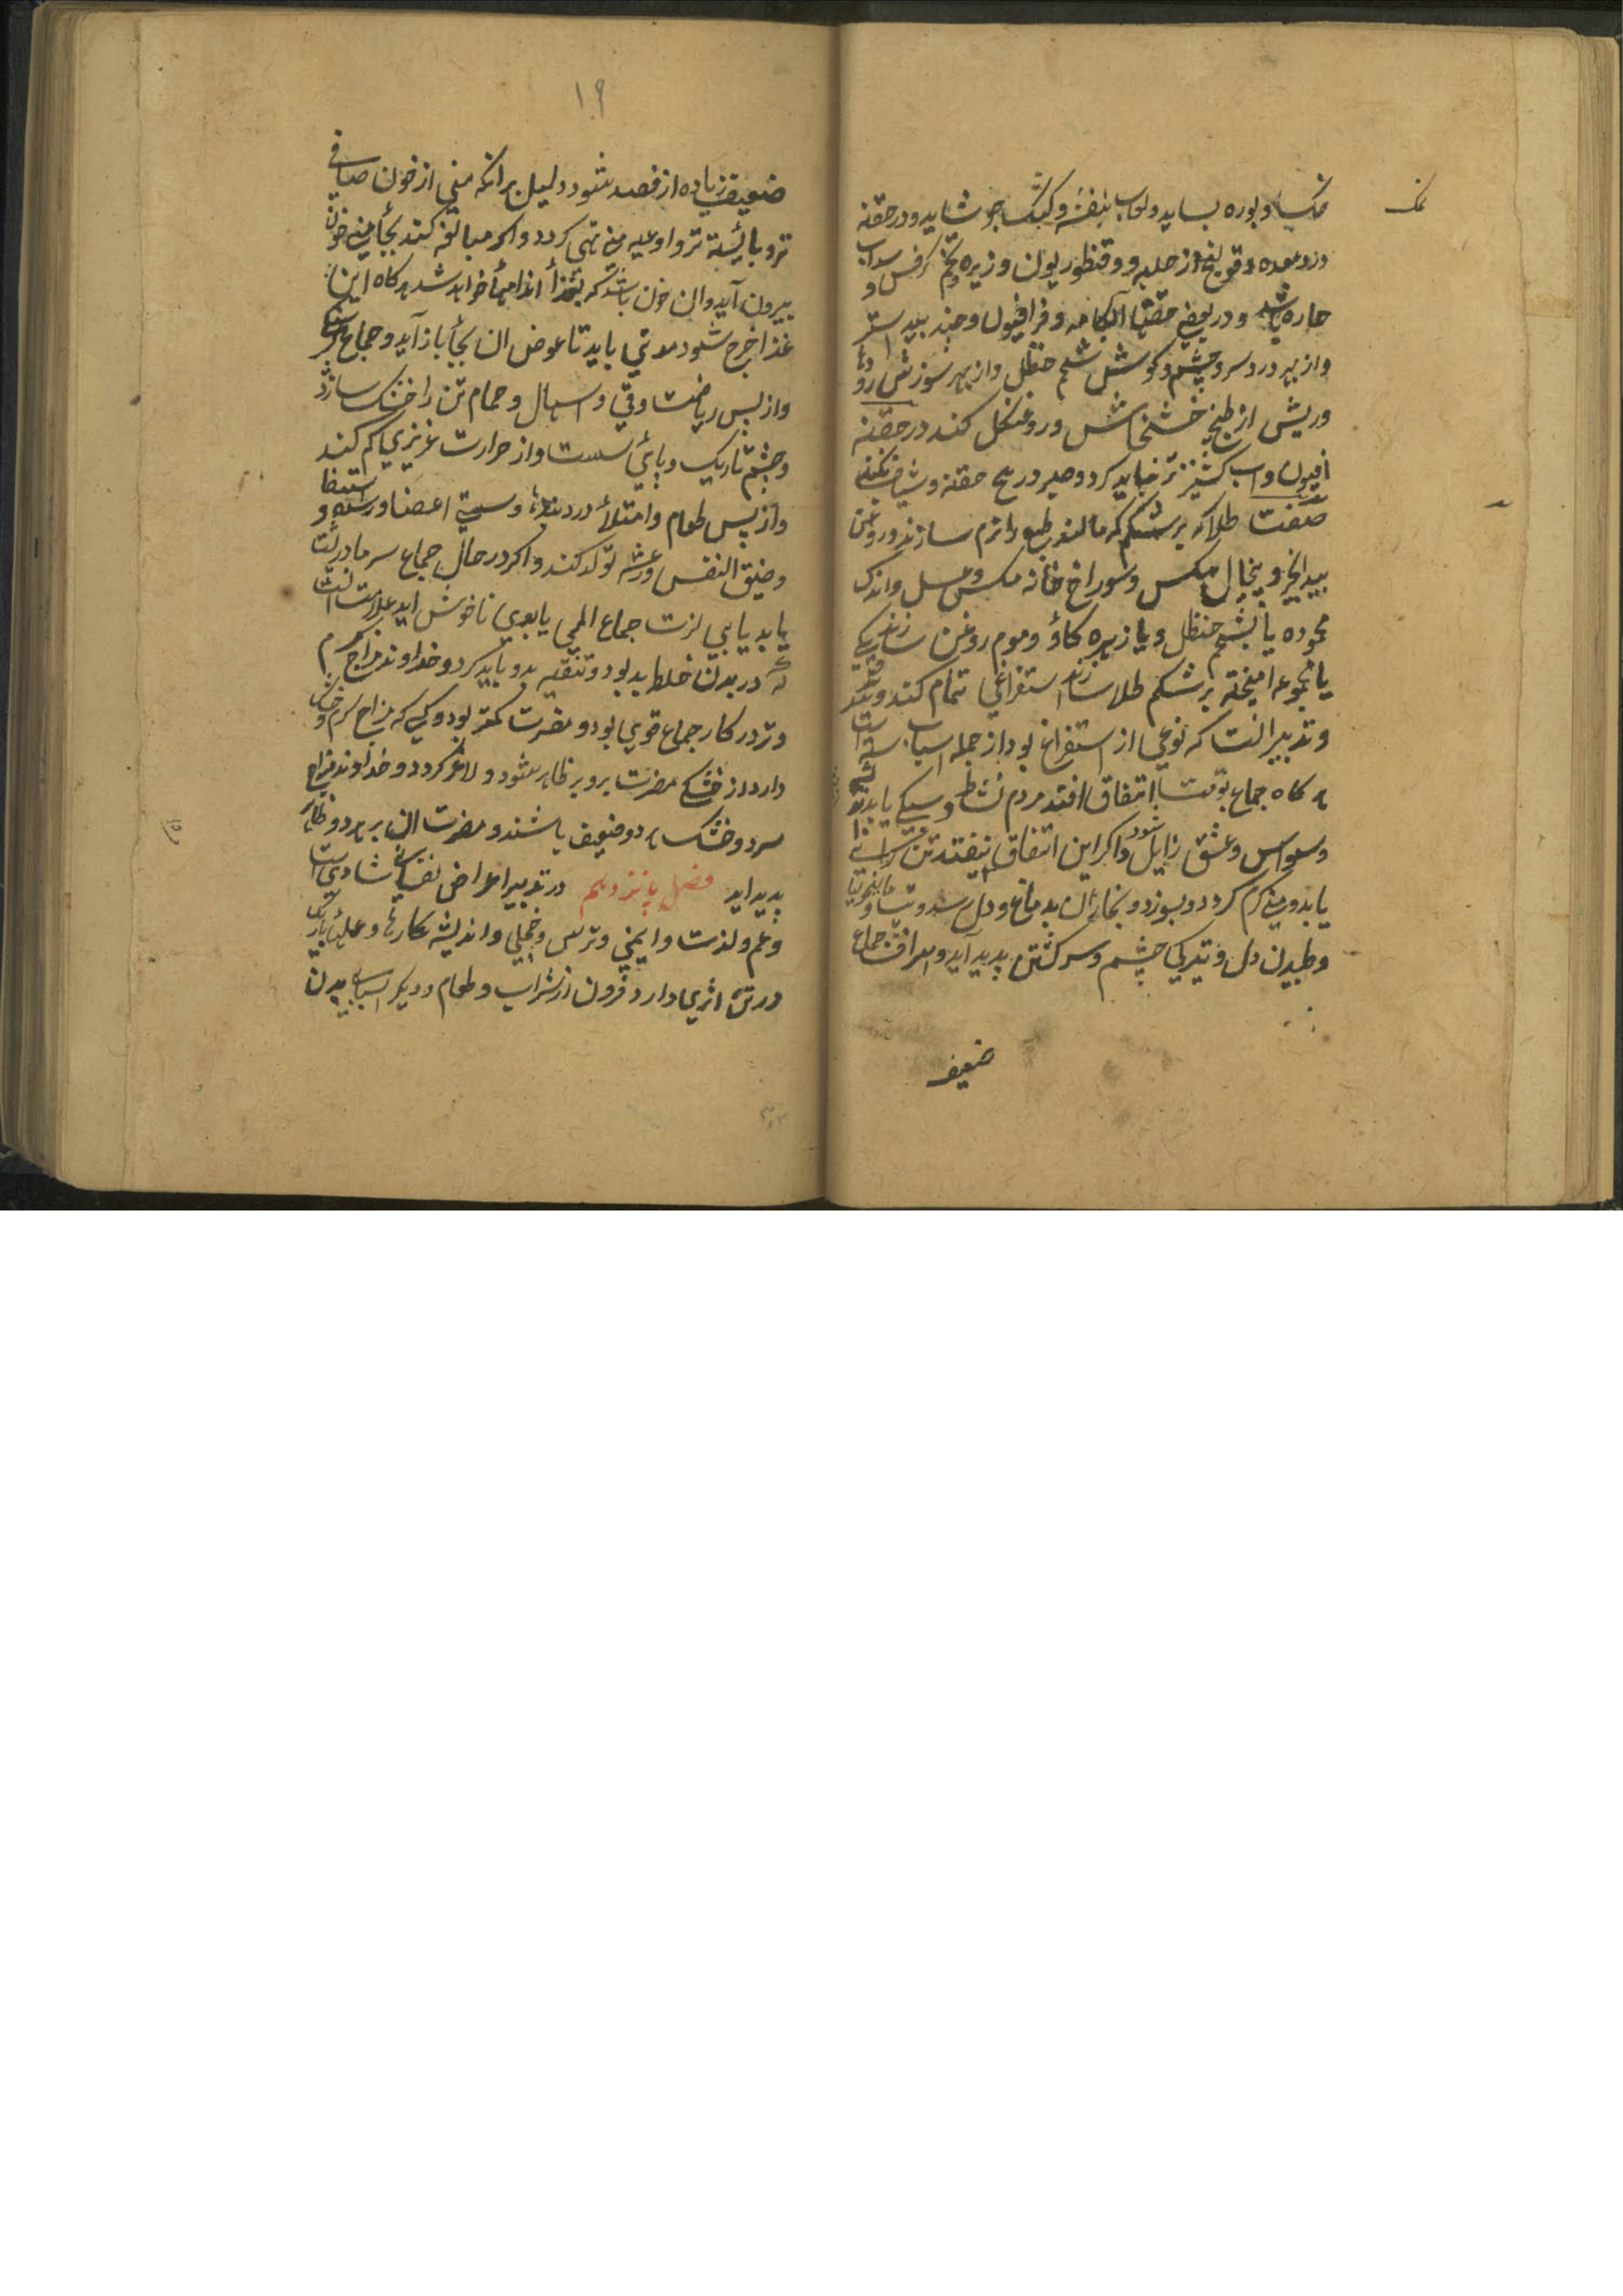 نمک
نمک و بوره بساید و لعاب بنفشه و کشک جو شاید و در حقنه
درد معده و قولنج از حلبه و قنطوریون و زیره و تخم کرفس و سداب
حاره باشد و در بعضی حقنها آبکامه و فرافیون و جند بیدستر
و از بهر درد سر و چشم و گوش شحم حنظل و از بهر سوزش رودها
و ریش از طبخ خشخاش و روغن گل کند در حقنه
افیون و آب کشنیز تر نباید کرد و صبر در هیچ حقنه و شیاف نکنند
صفت طلا که بر شکم که مالند طبع را نرم سازند و روغن
بید انجیر و پیخال مکس و سوراخ خانه مکس عسل و اندک
محموده یا بشحم حنظل و یا زیره کاو و موم روغن سازند یکی
یا مجموعه آمیخته بر شکم طلا سازند استفراغی تمام کند
و تدبیر آنست که نوعی از استفراغ بود از جمله اسباب
هر کاه جماع بوقت اتفاق افتد مردم نشاط و سبکی یابد
وسواس و عشق زایل شود و اکر این اتفاق نیفتد تن
یابد و منی گرم کردد و بسوزد و بخار آن بدماغ و دل رسد و مالیخولیا
و طپیدن دل و تیرکی چشم و سر کشتن پدید آید و اسراف جماع
ضعیف
۱۹
ضعیفی زیاده از فصد بشود دلیل بر آنکه منی از خون صافی
تر و بایسته تر و اوعیه منی تهی کردد و اکر مبالغه کند بجای منی خون
بیرون آید و آن خون باشد که بغذا اندامها خواهد شد هر کاه این
غذا خرج شود مدتی باید تا عوض آن بجای باز آید و جماع
و از پس ریاضت و قی و اسهال و حمام تن را خشک سازد
و چشم تاریک و پای سست و از حرارت غریزی کم کند
و از پس طعام و امتلا درد بندها و سستی اعضا و استسقا
و ضیق النفس و رعشه تولد کند و اکر در حال جماع سرما در پشت
یابد یا بی لذت جماع المی یا بویی ناخوش آید علامت آنست
که در بدن خلط بد بود و تنقیه بدو باید کرد و خداوند مزاج گرم
و تر در کار جماع قوی بود و مضرت کمتر بود و کسی که مزاج گرم و خشک
دارد از خشکی مضرت برو بر ظاهر شود و لاغر کردد و خداوند مزاج
سرد و خشک هر دو ضعیف باشند و مضرت آن بر هر دو ظاهر
پدید اید فصل پانزدهم در تدبیر اعراض نفسانی شادی
و غم و لذت و ایمنی و ترس و خجلی و اندیشه کارها و علمهای باریک
در تن اثری دارد فزون از شراب و طعام و دیکر اسباب بدن